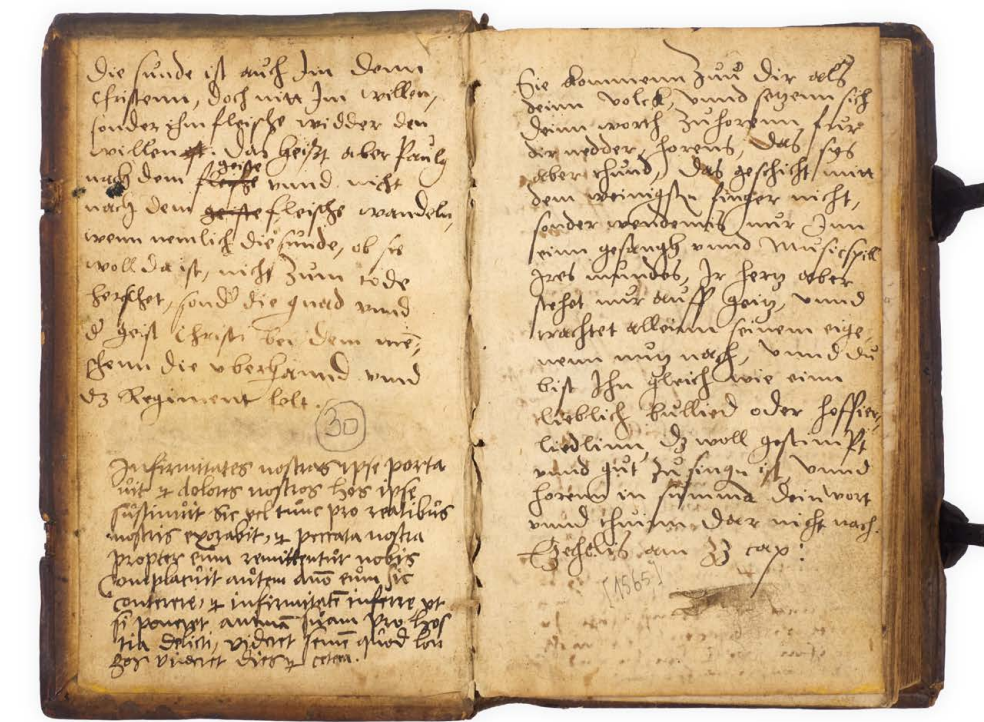 Die sunde ist auch Im denn
Christenn, doch nitt Im willen,
sonder ihm fleische widder den
willen ist. Das heist aber Paulꝰ
nach dem fleische geiste vnnd nicht
nach dem geiste fleische wandeln,
wenn nemlich die sunde, ob sie
woll da ist, nicht zum tode
herschet, sond die gnad vnnd
d geist Christi bei dem mē,
schenn die vberhannd vnnd
dz Regiment
30
Infirmitates nostras ipse porta
uit et dolores nostros hos ipse
sustinuit Sic vel tunc pro realibus
nostris exorabit, et peccata nostra
propter eum remittentur nobis
Complacuit autem dno eum sic
conterere, et infirmitatē inferre vt
si poneret animā suam pro hos
tia delicti, videret semē quod lon
gos videret dies et cetera.
Sie kommenn Zuu dir als
deinn volck, vnnd setzenn sich
deinn worth Zuhorenn, fur
dir nedder, horens, das
aber thund, das geschicht mitt
dem weinigstn finger nicht,
sonder wendens nur Inn
einn gesangh vnnd Musicspill
Ires mundes, Ir hertz aber
stehet nur auff geitz, vnnd
trachtet alleinn seinem eige,
nenn nutz nach, vnnd du
bist Ihn gleich wie einn
lieblich bullied oder hoffier,
liedlinn, dz woll gestimpt
vnnd gut zu singn ist vnnd
horenn in summa dein wort
vnnd thuinn dar nicht nach.
Ezechelis am 33 cap:
[1565]